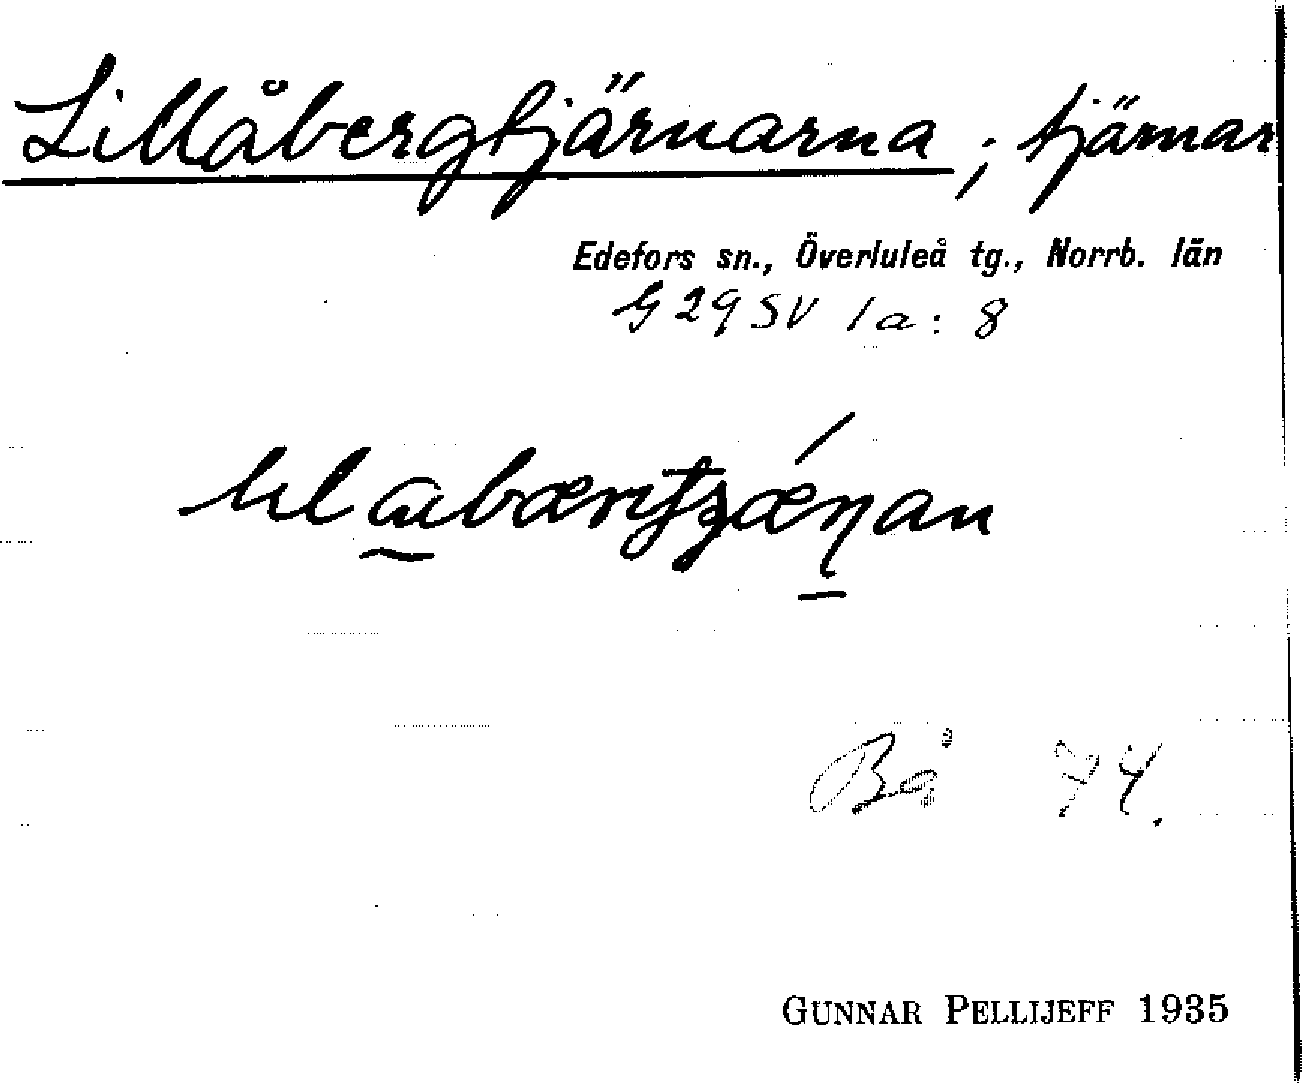 Lillåbergtjärnarna ; tjärnar
Edefors sn., Överluleå tg., Norrb. län
G 29 SV 1a: 8
Bå 74.
GUNNAR PELLIJEFF 1935